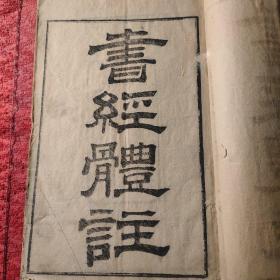 書經體註